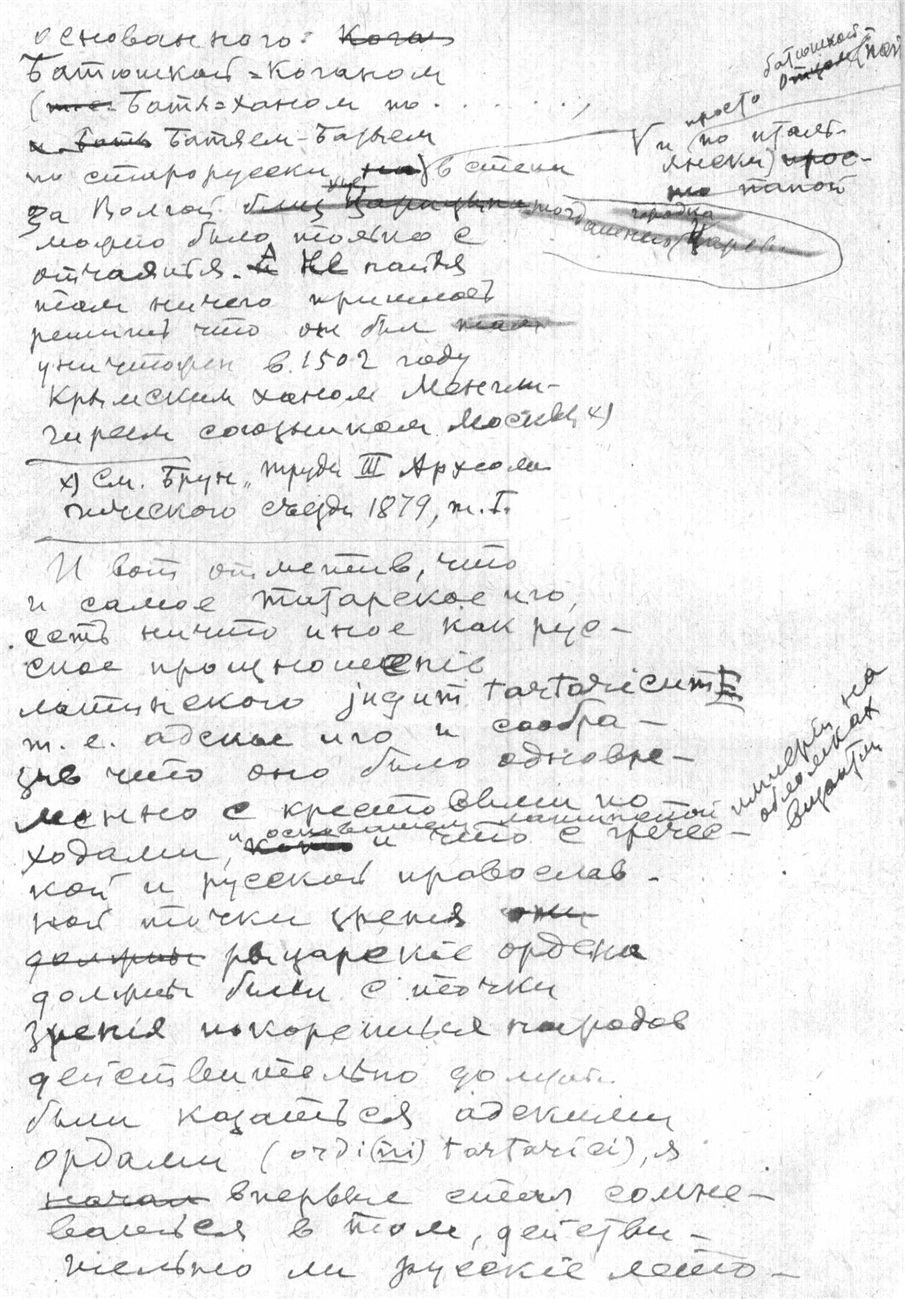 основанного: Кога
Батюшкой=Коганом
(т.е. Батя=ханом по . . . . . . . ,
Батяем-Батыем
по старорусски на) в степи
за Волгой близ Царицына
можно было только с
отчаяния. А Не найдя
там ничего пришлось
решить что он был
уничтожен в 1502 году
Крымским ханом Менгли-
гиреем союзником Москвы х)
х) См. Брун „Труды III Археоло
гического съезда 1879, т. I.
И вот отметив, что
и самое Татарское иго,
есть ничто иное как рус-
ское произношение
латинского jugum tartaricum
т. е. адское иго и сообра-
зив что оно было одновре-
менно с крестовыми по
ходами, и основанием латинской
империи на
обломках
Византии
и что с гречес-
кой и русской православ-
ной точки зрения они
должны рыцарскіе ордена
должны были с точки
зрения покоренных народов
действительно должны
были казаться адскими
ордами (ordi(ni) tartarici), я
начал впервые стал сомне-
ваться в том, действи-
тельно ли русскіе лето-
просто
батюшкой-
V и (по италь-
янски) прос-
то папой
городка